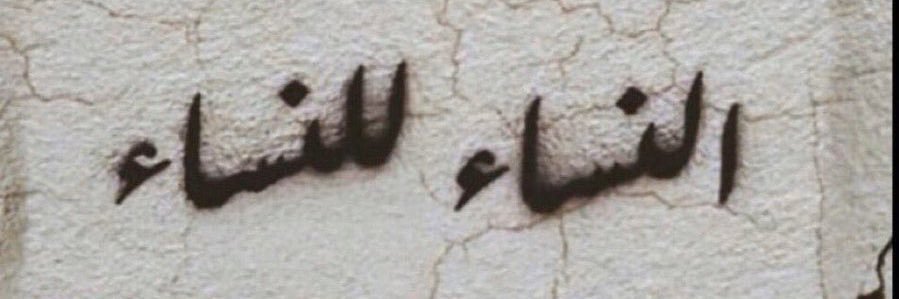 النساء للنساء